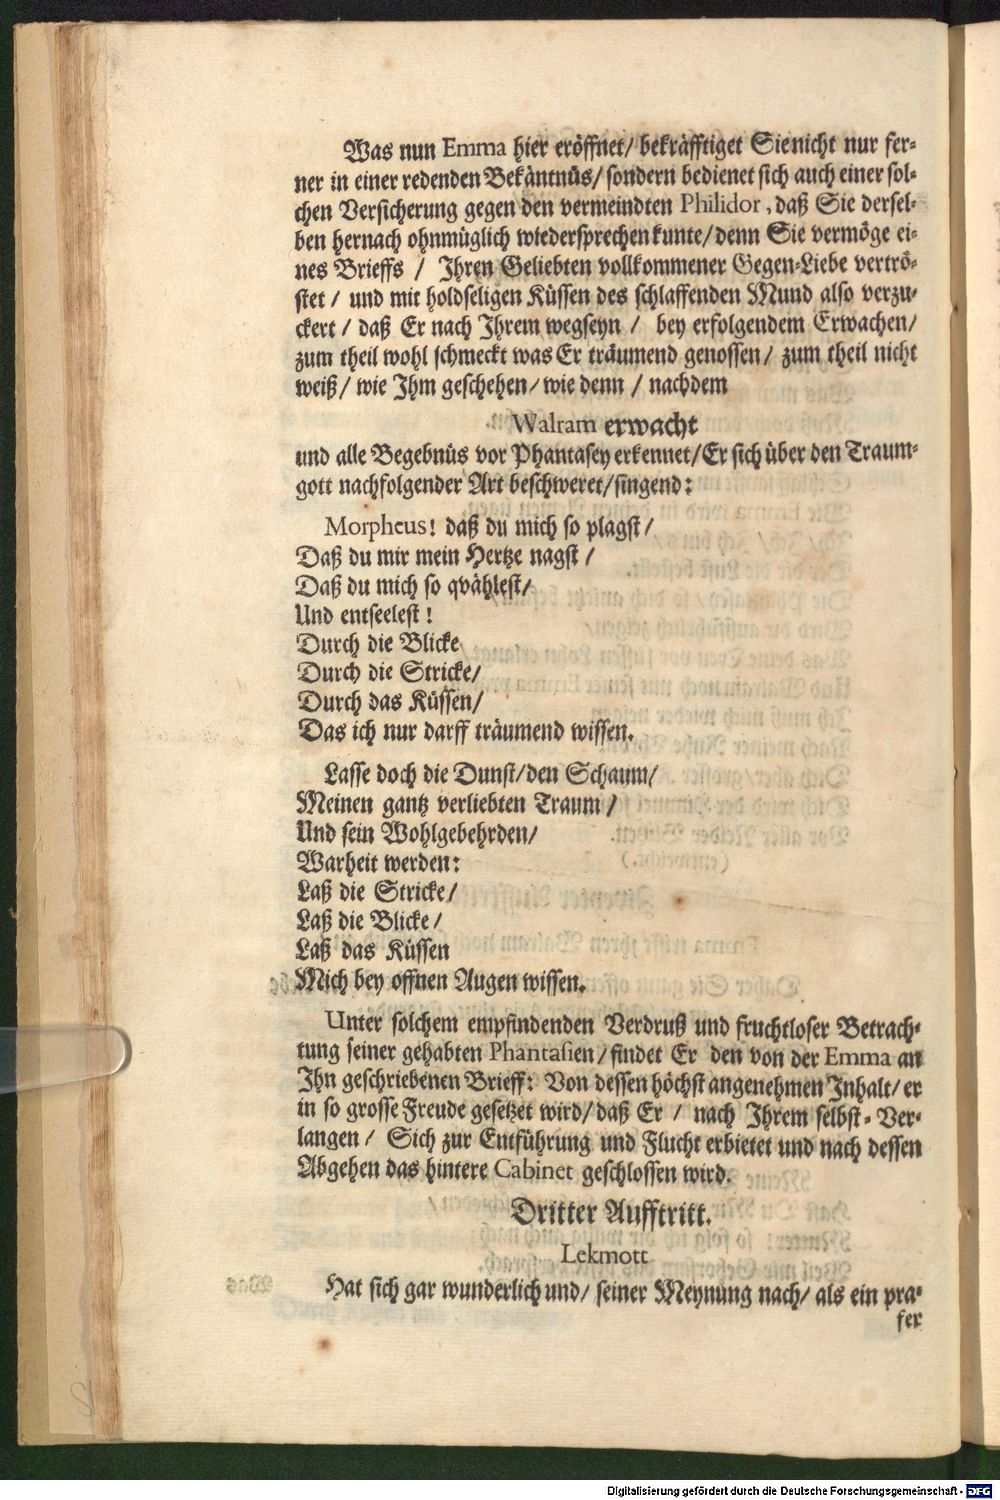 Was nun Emma hier eröffnet/ bekräfftiget Sie nicht nur fer-
ner in einer redenden Bekäntnüs/ sondern bedienet sich auch einer sol-
chen Versicherung gegen den vermeindten Philidor, daß Sie dersel-
ben hernach ohnmüglich wiedersprechen kunte/ denn Sie vermöge ei-
nes Brieffs / Ihren Geliebten vollkommener Gegen-Liebe vertrö-
stet / und mit holdseligen Küssen des schlaffenden Mund also verzu-
ckert / daß Er nach Ihrem wegseyn / bey erfolgendem Erwachen/
zum theil wohl schmeckt was Er träumend genossen/ zum theil nicht
weiß/ wie Ihm geschehen/ wie denn / nachdem
Walram erwacht
und alle Begebnüs vor Phantasey erkennet/ Er sich über den Traum-
gott nachfolgender Art beschweret/ singend:
Morpheus! daß du mich so plagst/
Daß du mir mein Hertze nagst /
Daß du mich so qvählest/
Und entseelest!
Durch die Blicke
Durch die Stricke/
Durch das Küssen/
Das ich nur darff träumend wissen.
Lasse doch die Dunst/ den Schaum/
Meinen gantz verliebten Traum /
Und sein Wohlgebehrden/
Warheit werden:
Laß die Stricke/
Laß die Blicke/
Laß das Küssen
Mich bey offnen Augen wissen.
Unter solchem empfindenden Verdruß und fruchtloser Betrach-
tung seiner gehabten Phantasien/ findet Er den von der Emma an
Ihn geschriebenen Brieff: Von dessen höchst angenehmen Inhalt/ er
in so grosse Freude gesetzet wird/ daß Er / nach Ihrem selbst-Ver-
langen / Sich zur Entführung und Flucht erbietet und nach dessen
Abgehen das hintere Cabinet geschlossen wird.
Dritter Aufftritt.
Lekmott
Hat sich gar wunderlich und/ seiner Meynung nach/ als ein pra-
fer
Digitalisierung gefördert durch die Deutsche Forschungsgemeinschaft - DFG